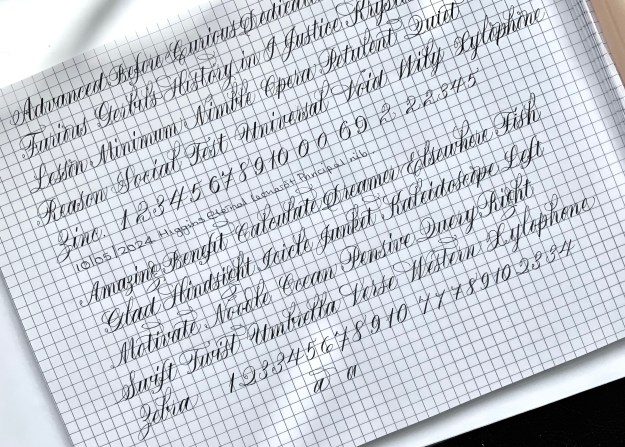 Advanced Before Curious Dedicated
Furious Gerbils History in I Justice Krystal
Lesson Minimum Nimble Opera Petulent Quiet
Reason Social Test Universal Void Wily Xylophone
Zinc. 1 2 3 4 5 6 7 8 9 10 0 0 6 9 2 2 2 3 4 5
10/05/2024 Higgins eternal Leonardt Principal nib.
Amazing Benght Calculate Dreamer Elsewhere Fish
Glad Hindsight Icicle Junket Kaleidoscope Left
Motivate Nocole Ocean Pensive Query Right
Swift Twist Umbrella Verse Western Xylophone
Zebra 1 2 3 3 4 5 6 7 8 9 10 7 7 7 8 9 10 2 3 3 4
a a